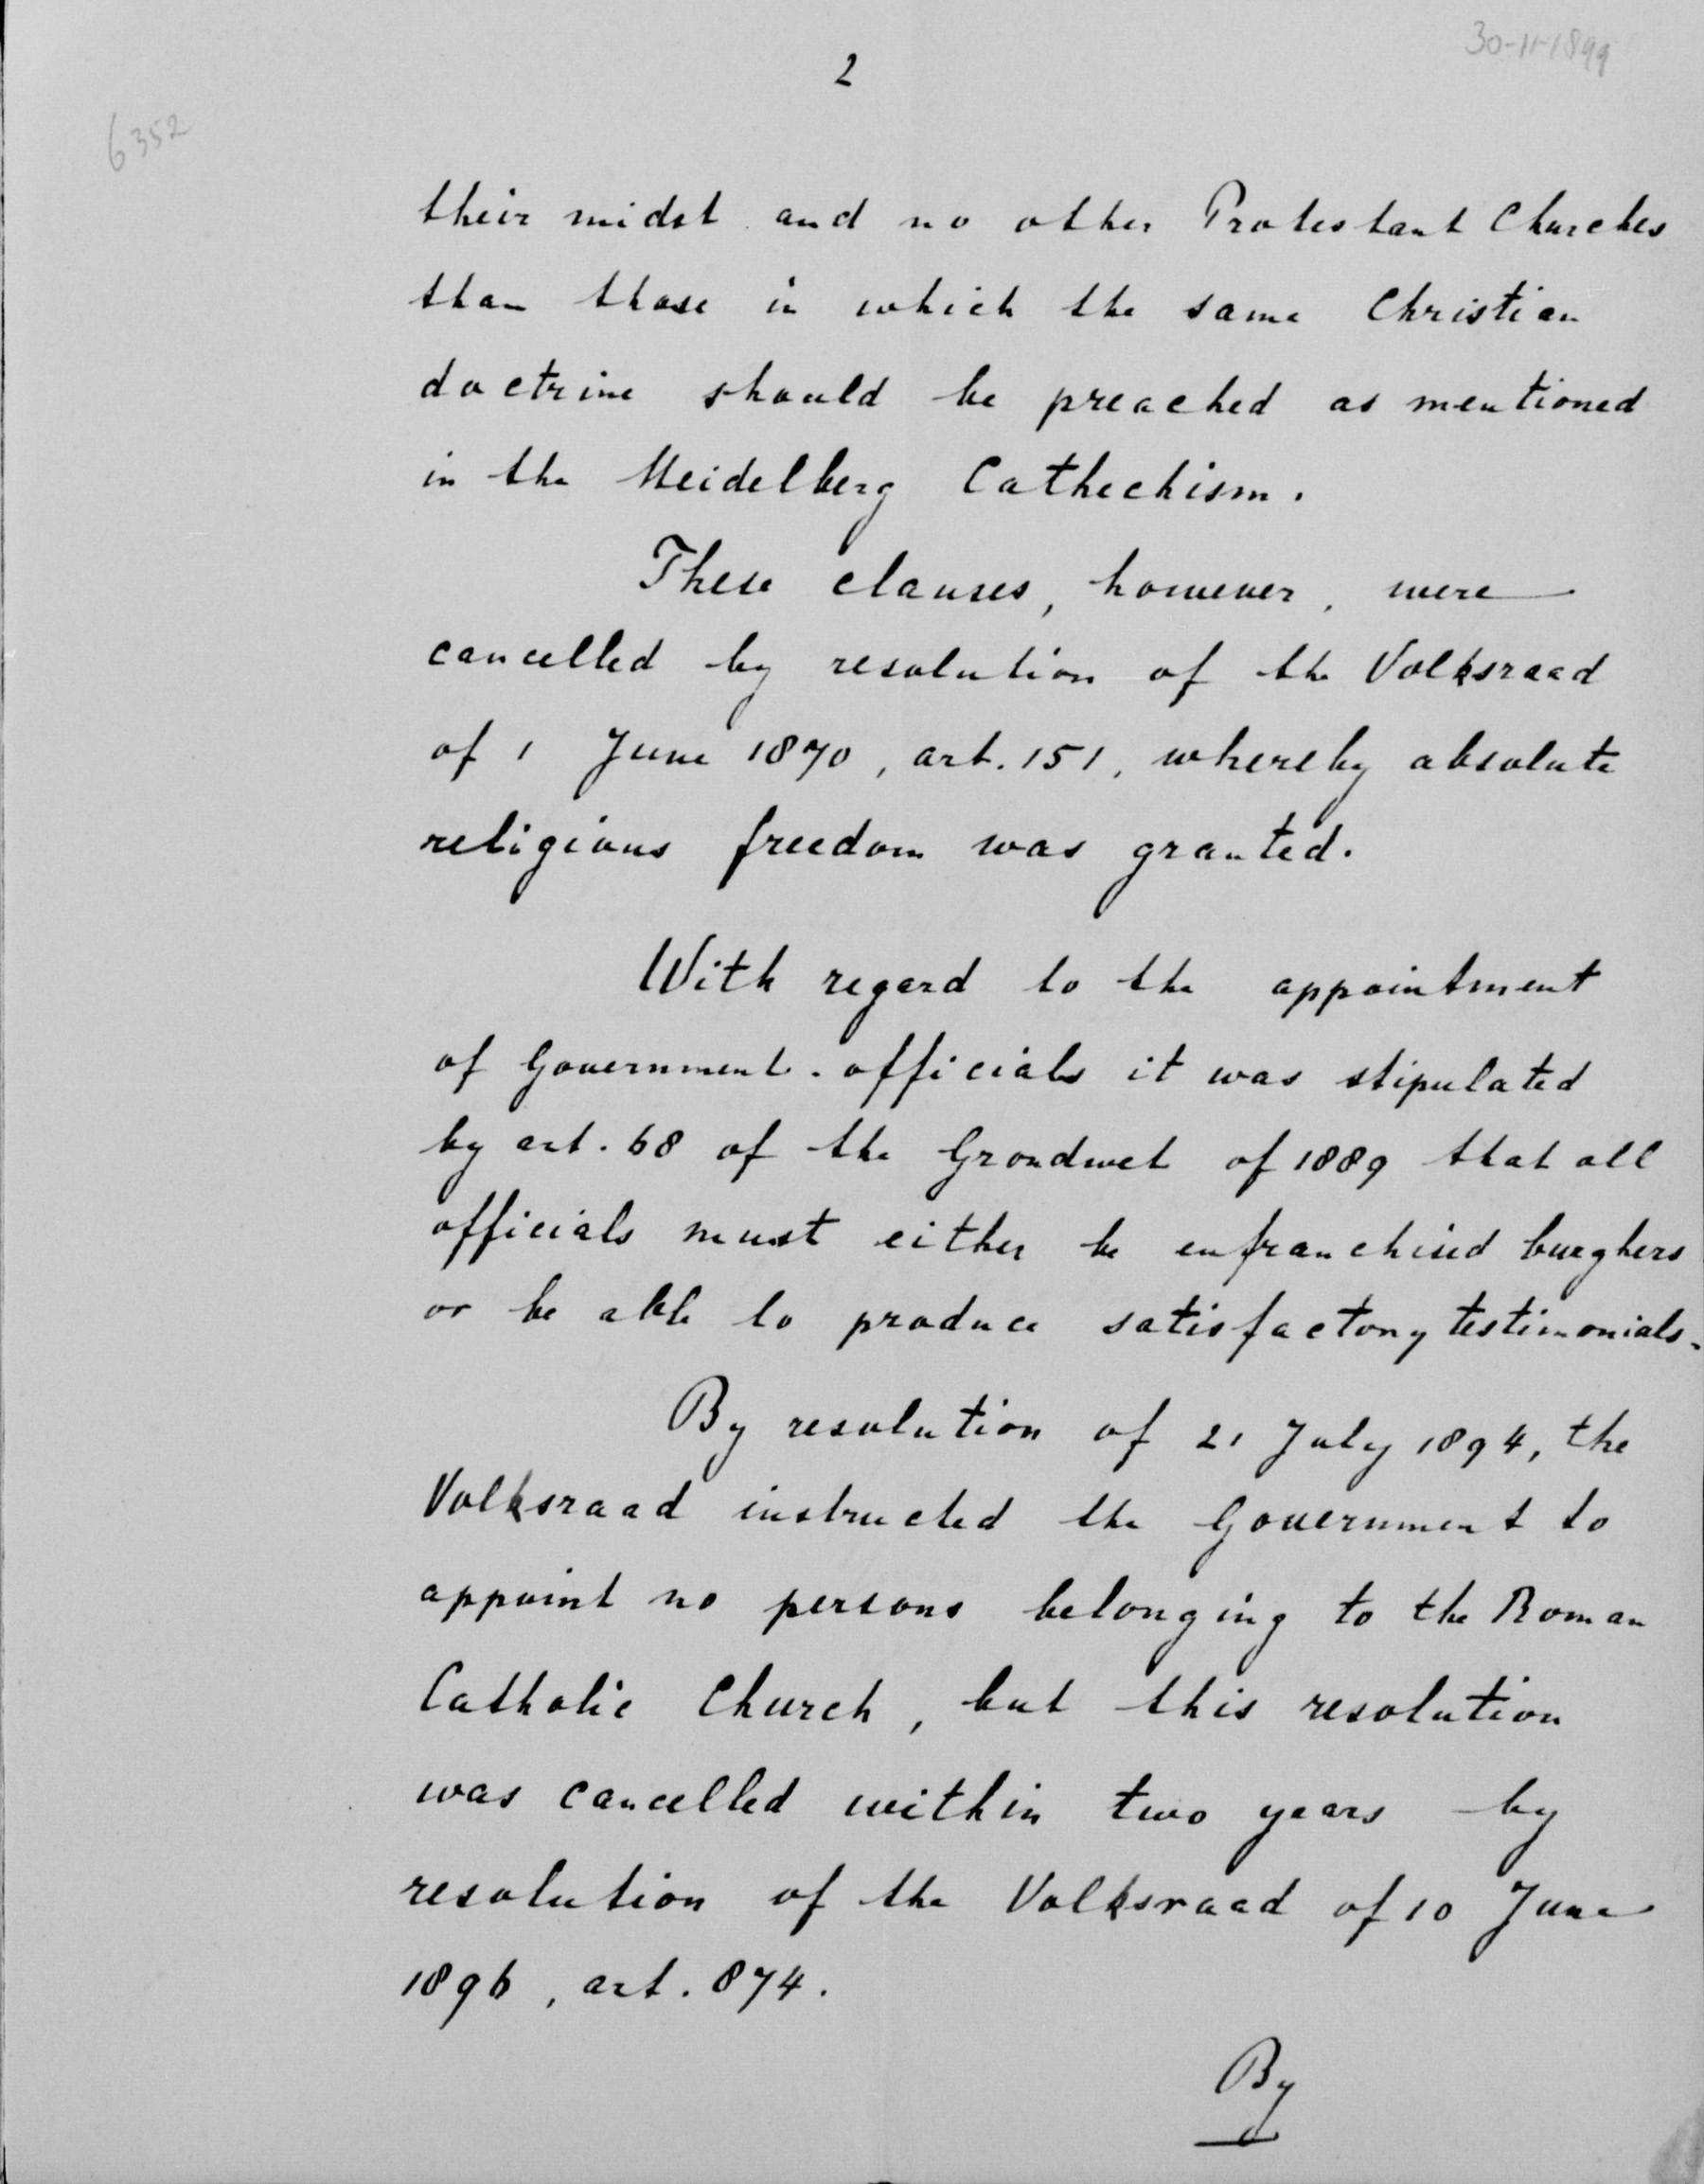 30-11-1899
2
6352
their midst and no other Protestant Churches
than those in which the same Christian
doctrine should be preached as mentioned
in the Heidelberg Cathechism.
These clauses, however, were
cancelled by resolution of the Volksraad
of 1 June 1870, art. 151, whereby absolute
religious freedom was granted.
With regard to the appointment
of Government-officials it was stipulated
by art. 68 of the Grondwet of 1889 that all
officials must either be enfranchised burghers
or be able to produce satisfactory testimonials.
By resolution of 21 July 1894, the
Volksraad instructed the Government to
appoint no persons belonging to the Roman
Catholic Church, but this resolution
was cancelled within two years by
resolution of the Volksraad of 10 June
1896, art. 874.
By